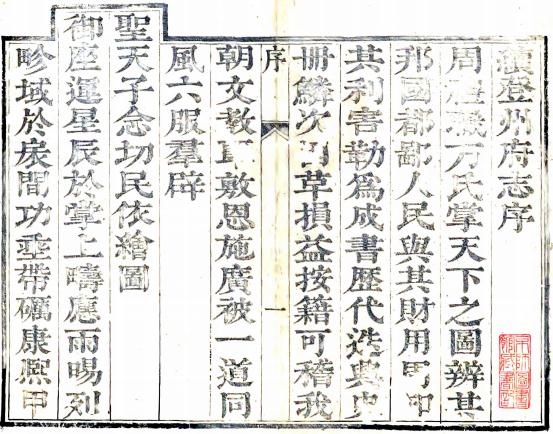 續登州府志序
周禮職方氏掌天下之圖辨其
邦國都鄙人民與其財用
共利害勒為成書歷代迭典史
冊鱗次因革損益按籍可稽我
序
一
朝文教敦恩施廣被一道同
風六服羣辟
聖天子念切民依繪圖
御座運星辰於掌上疇應雨暘列
畛域於扆間功垂帶礪康熙甲